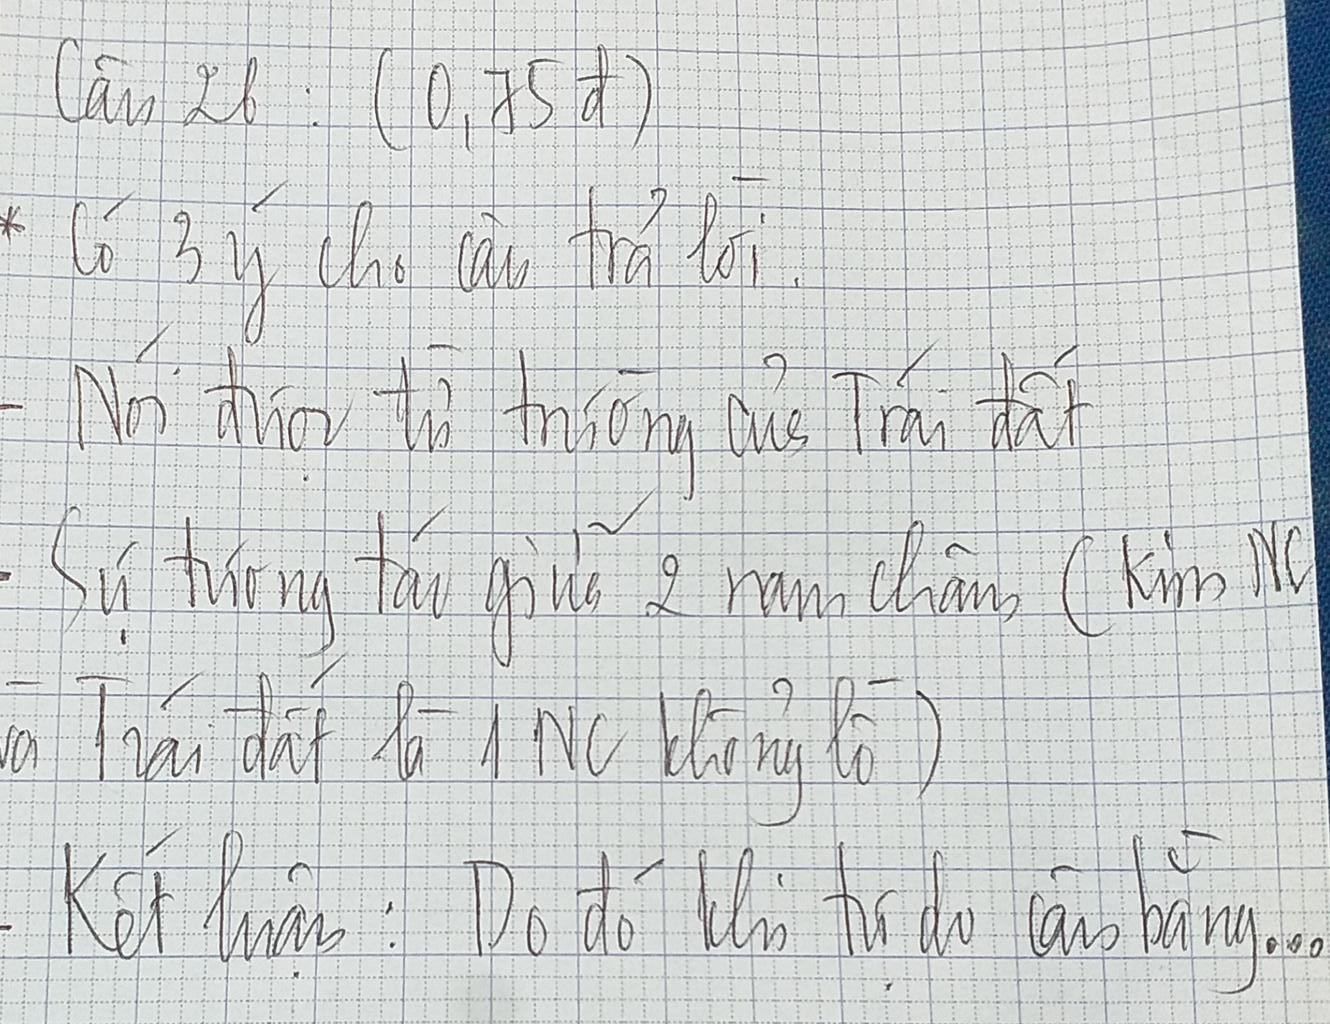 Câu 2b : (0,75đ)
* Có 3 ý cho câu trả lời.
- Nói được từ trường của Trái đất
- Sự tương tác giữa 2 nam châm (Kim NC
và Trái đất là 1 NC khổng lồ)
- Kết luận : Do đó khi tự do cân bằng...